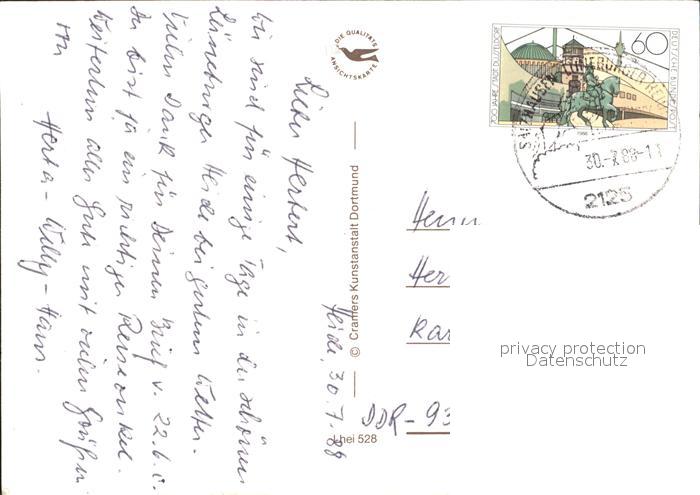 Heide, 30.7.88
Lieber Herbert,
wir sind für einige Tage in der schönen
Lüneburger Heide bei gutem Wetter.
Vielen Dank für Deinen Brief v. 22.6.
Du bist ja ein richtiger Reiseonkel.
Weiterhin alles Gute mit vielen Grüßen
von Herta - Willy - Hans.
DIE QUALITÄTS
ANSICHTSKARTE
© Cramers Kunstanstalt Dortmund
Lhei 528
700 JAHRE STADT DÜSSELDORF
60
DEUTSCHE BUNDESPOST
1988
SALZHAUSEN LÜNEBURGER HEIDE
30.-7.88-11
2125
Herrn
Her
Kar
DDR-93
privacy protection
Datenschutz